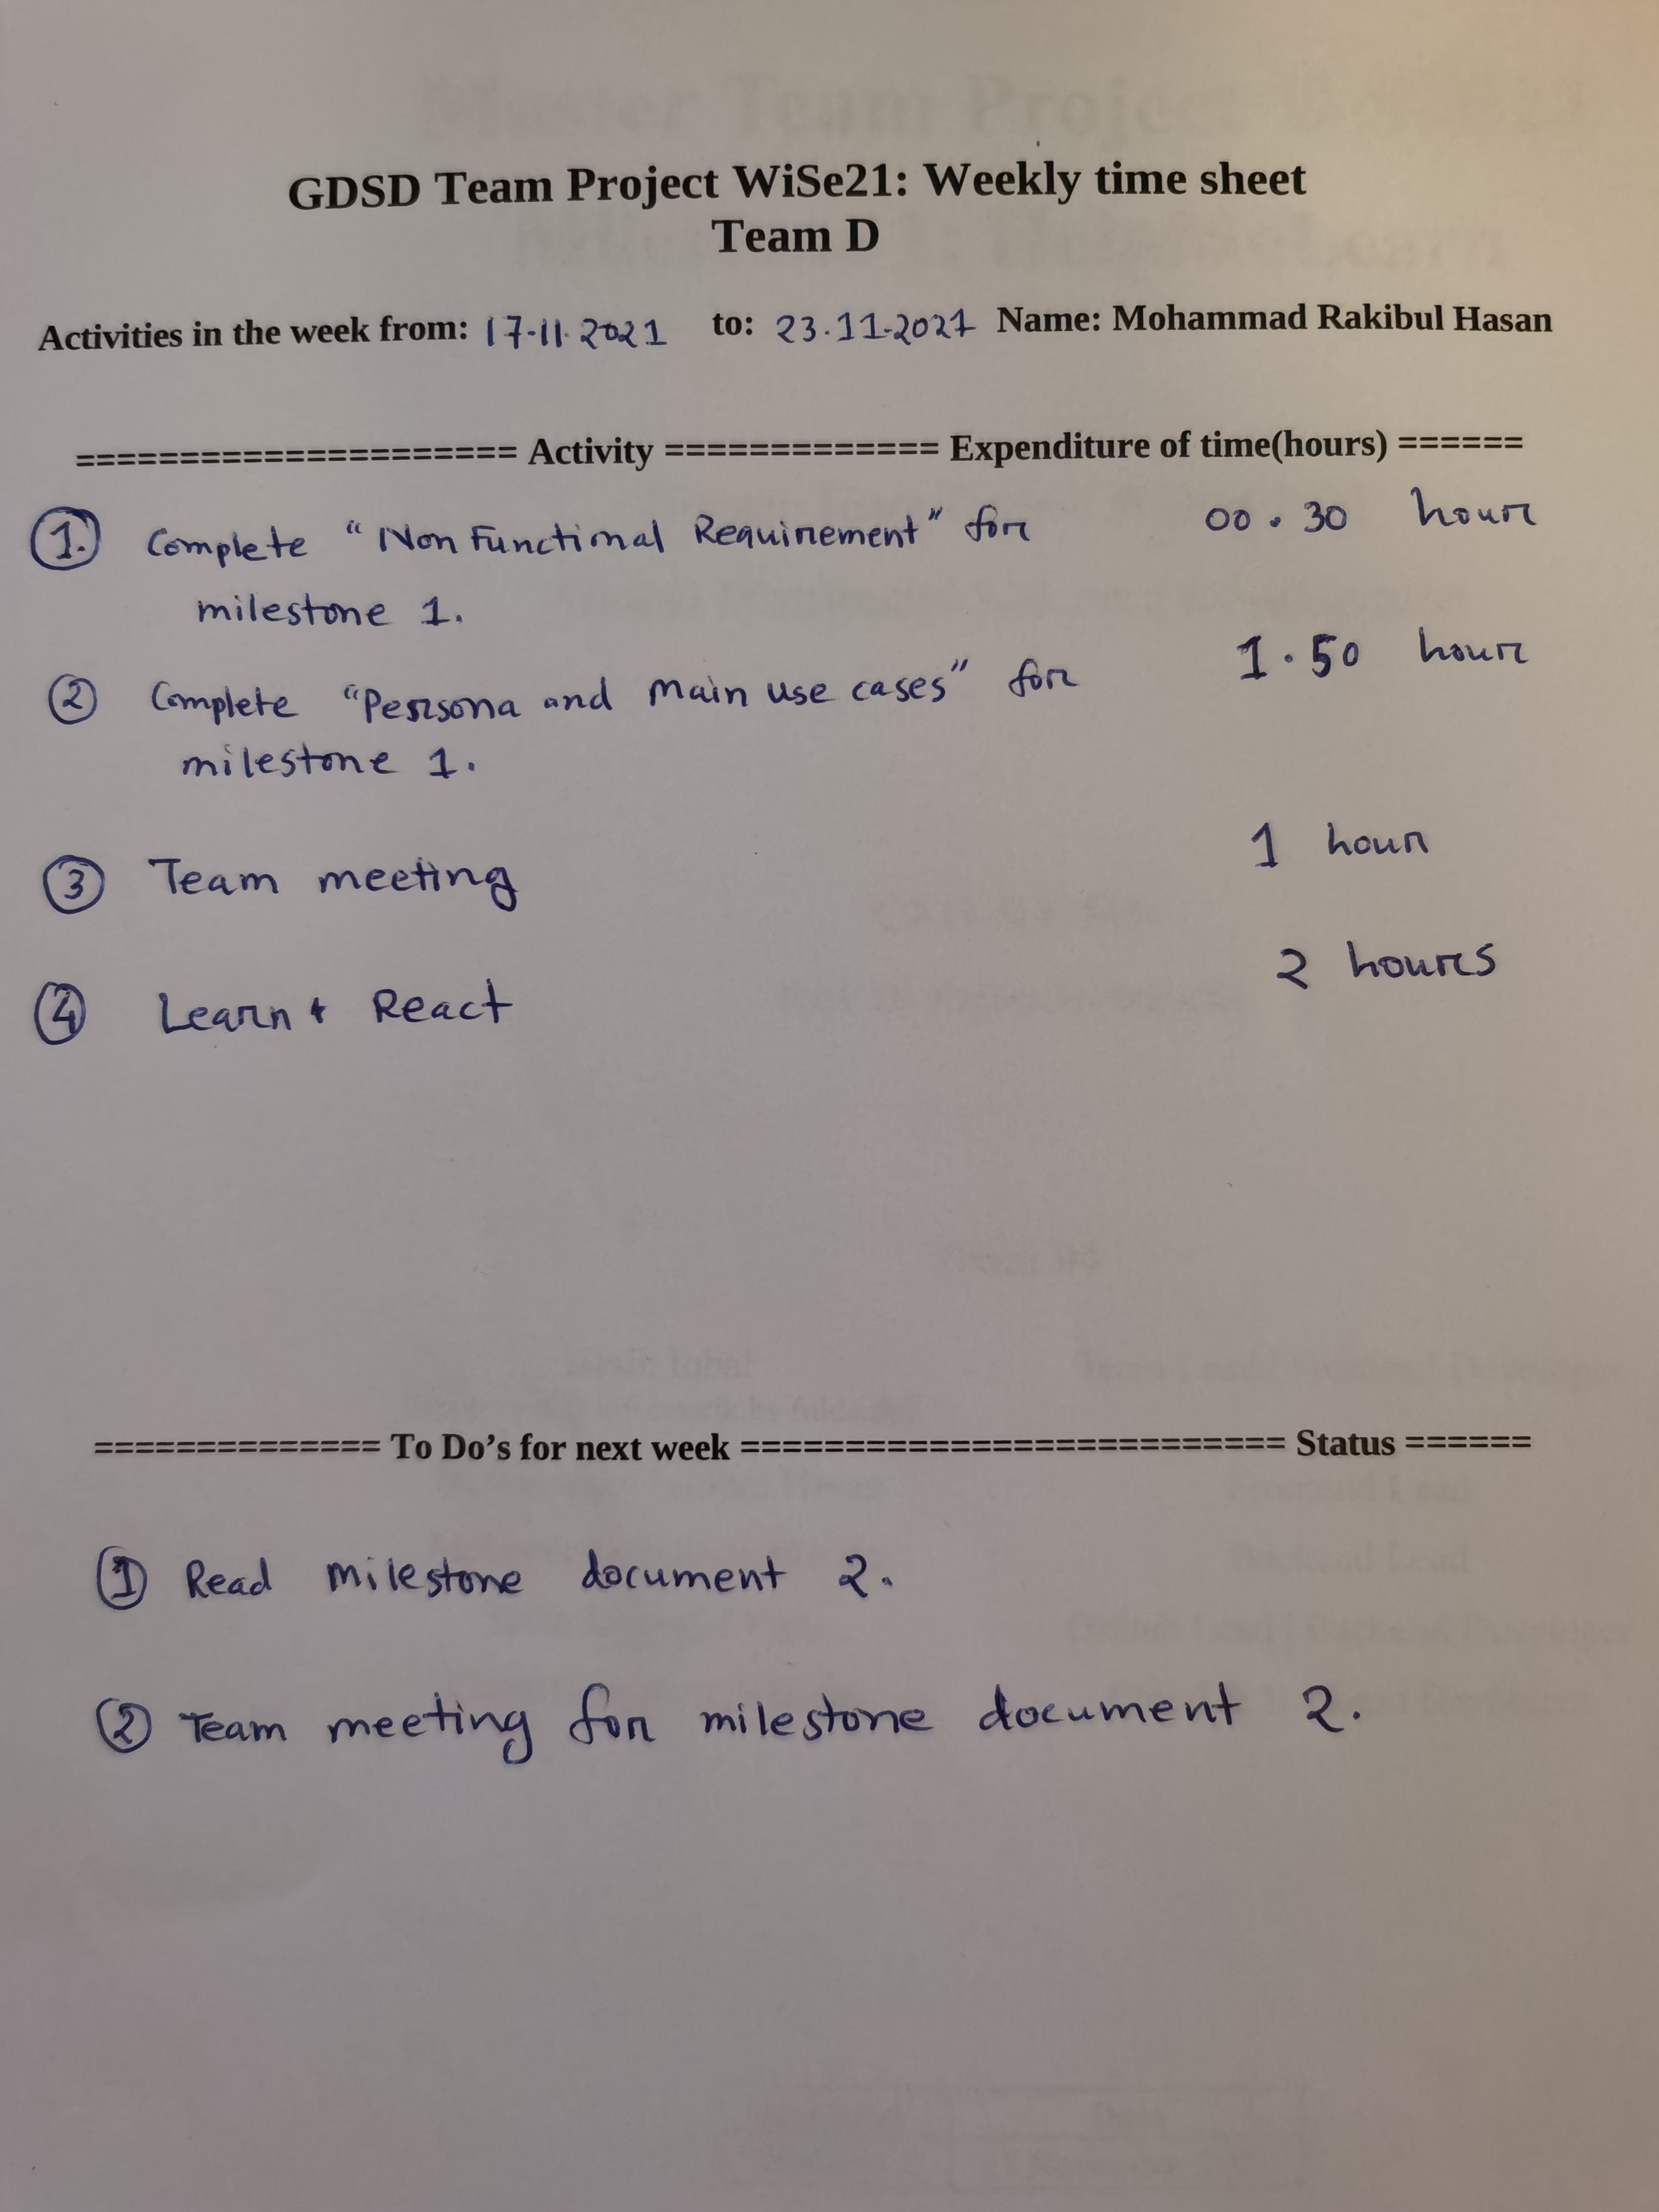 GDSD Team Project WiSe21: Weekly time sheet
Team D
Activities in the week from: 17-11-2021 to: 23.11-2021 Name: Mohammad Rakibul Hasan
===================== Activity ============= Expenditure of time(hours) ======
1. Complete "Non Functional Requirement" for 00.30 hour
milestone 1.
2 Complete "Persona and Main use cases" for 1.50 hour
milestone 1.
3 Team meeting 1 hour
4 Learn React 2 hours
============== To Do's for next week ========================== Status ======
1 Read milestone document 2.
2 Team meeting for milestone document 2.